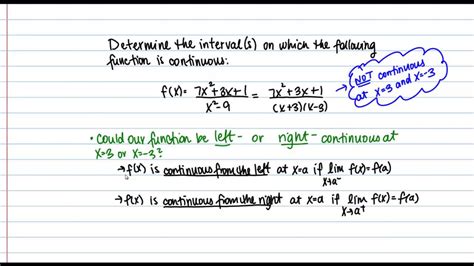 Determine the interval(s) on which the following
function is continuous:
f(x) = 7x²+3x+1 / x²-9 = 7x²+3x+1 / (x+3)(x-3)
NOT continuous
at x=3 and x=-3
• Could our function be left- or right-continuous at
x=3 or x=-3?
→ f(x) is continuous from the left at x=a if lim x→a⁻ f(x)=f(a)
→ f(x) is continuous from the right at x=a if lim x→a⁺ f(x)=f(a)